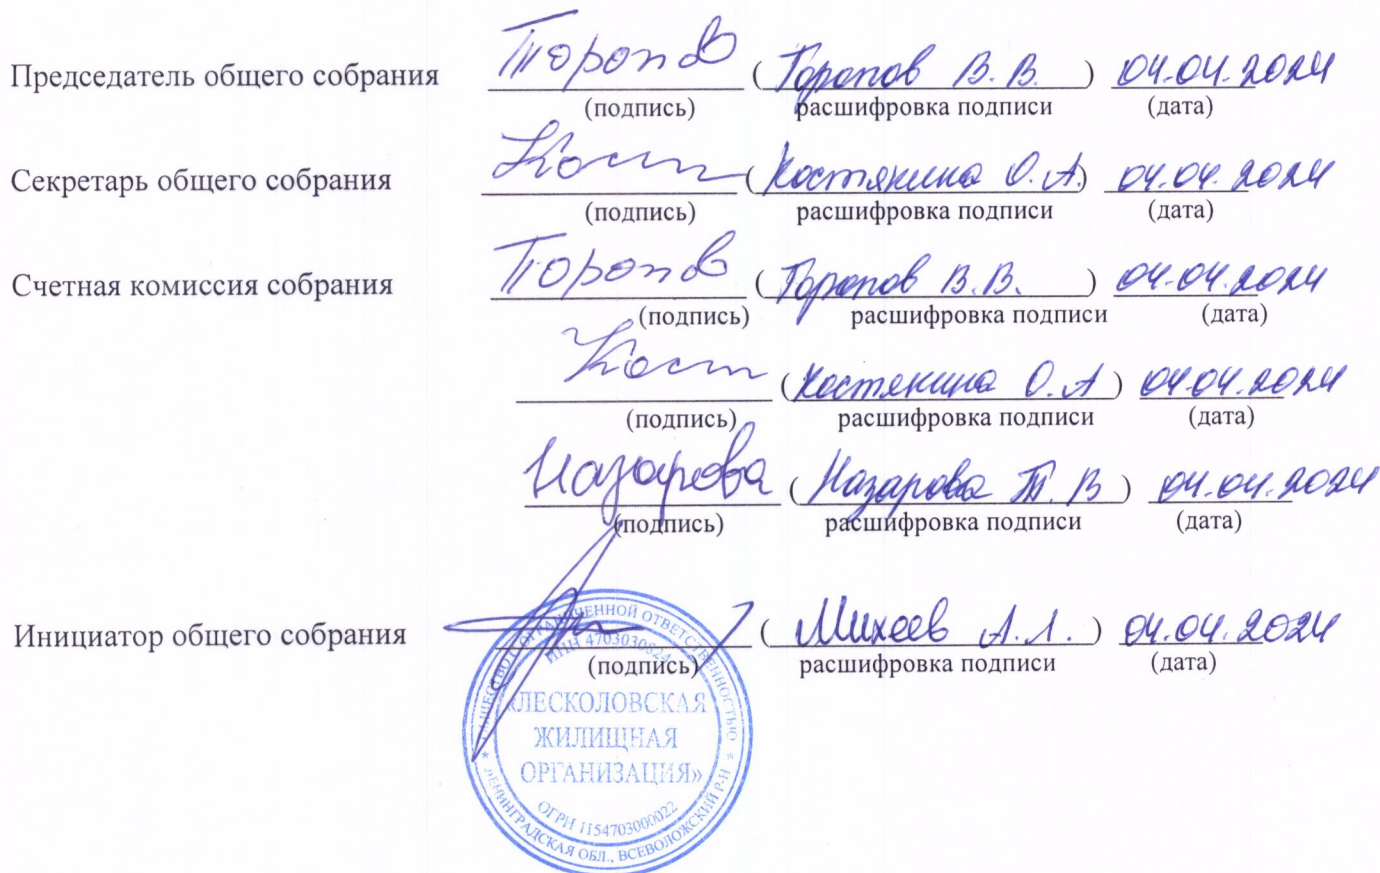 Председатель общего собрания Торопов (Торопов В. В.) 04.04.2024
(подпись) расшифровка подписи (дата)
Секретарь общего собрания Кост (Костякина О. А.) 04.04.2024
(подпись) расшифровка подписи (дата)
Счетная комиссия собрания Торопов (Торопов В. В.) 04.04.2024
(подпись) расшифровка подписи (дата)
Кост (Костякина О. А) 04.04.2024
(подпись) расшифровка подписи (дата)
Назарова (Назарова Т. В) 04.04.2024
(подпись) расшифровка подписи (дата)
Инициатор общего собрания (Михеев А. Л.) 04.04.2024
(подпись) расшифровка подписи (дата)
ОБЩЕСТВО С ОГРАНИЧЕННОЙ ОТВЕТСТВЕННОСТЬЮ
ИНН 4703030824
«ЛЕСКОЛОВСКАЯ
ЖИЛИЩНАЯ
ОРГАНИЗАЦИЯ»
ОГРН 1154703000022
* ЛЕНИНГРАДСКАЯ ОБЛ., ВСЕВОЛОЖСКИЙ Р-Н *